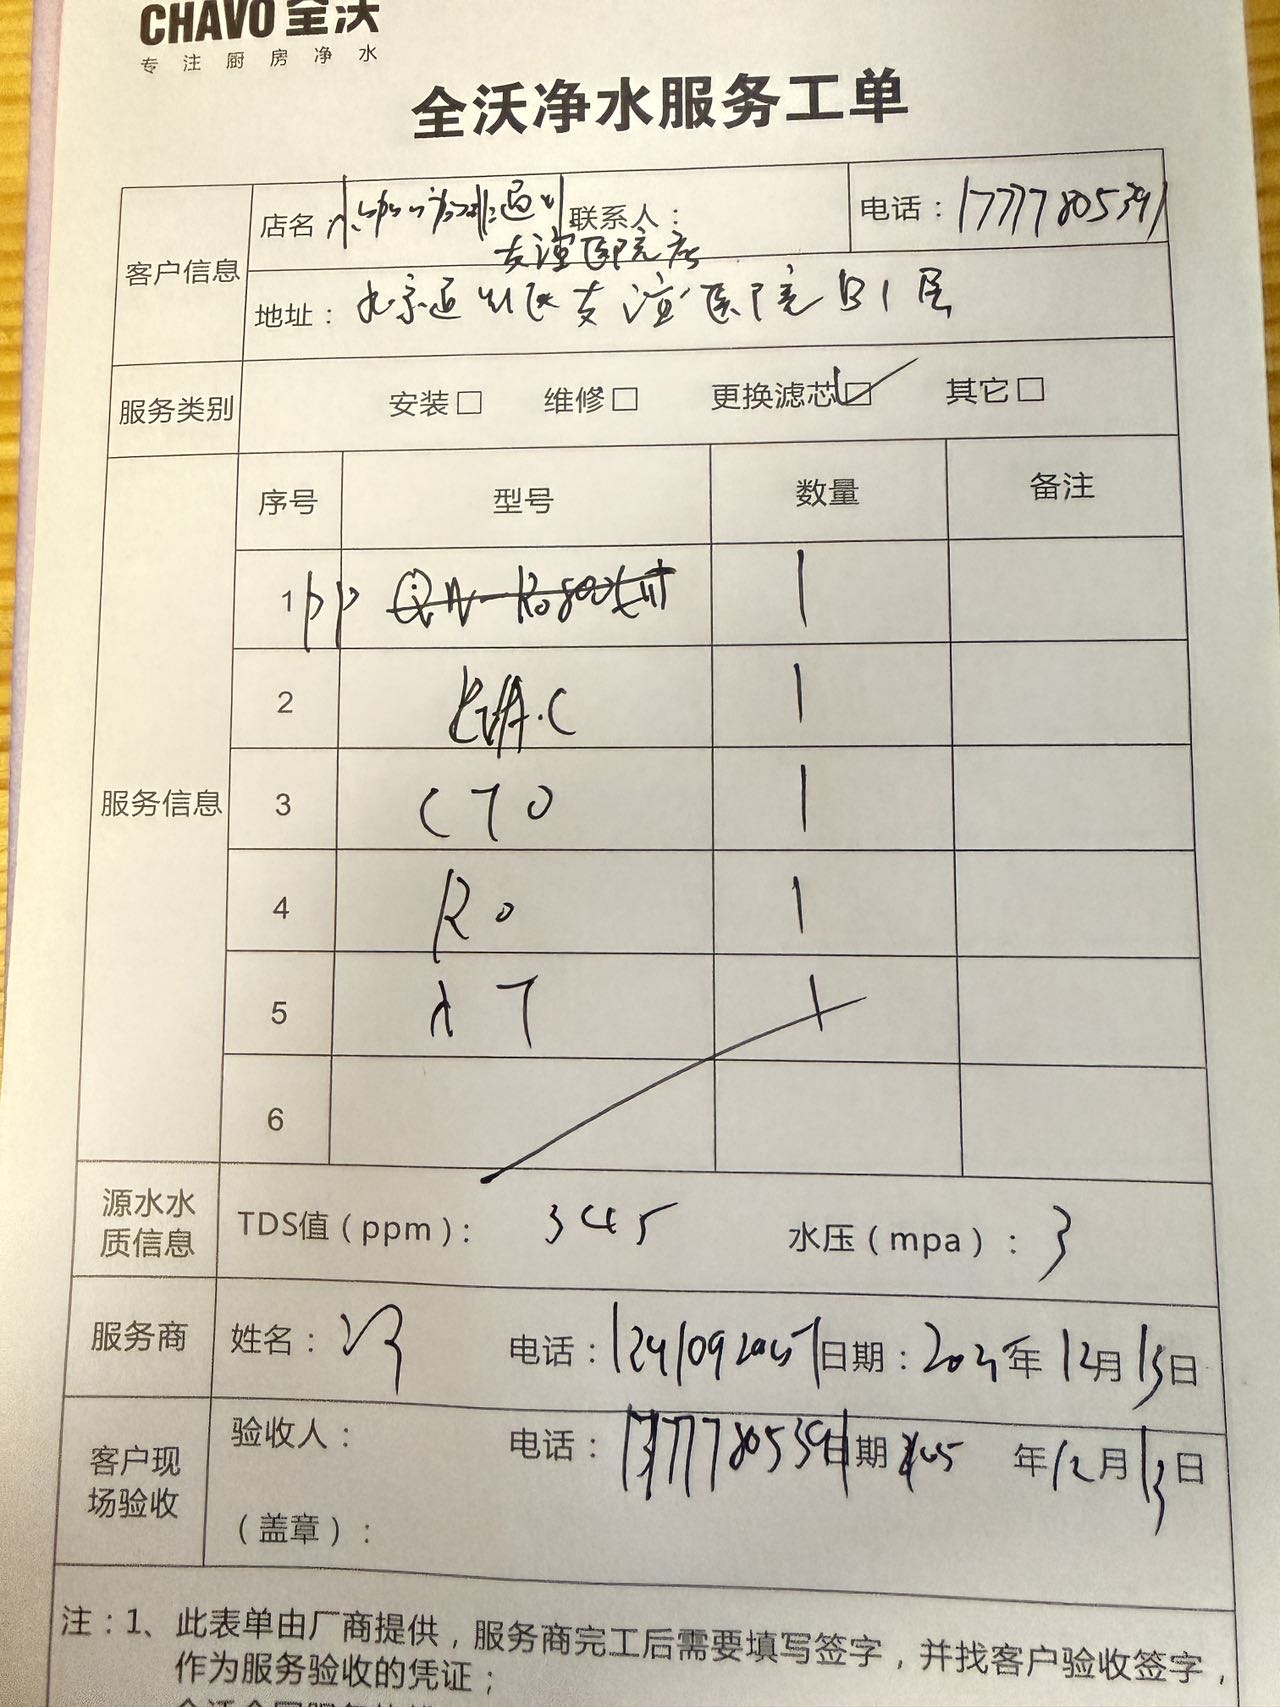 CHAVO 全沃
专注厨房净水
全沃净水服务工单
客户信息
店名： 联系人： 电话：17777805391
友谊医院店
地址：北京通州区友谊医院B1层
服务类别 安装□ 维修□ 更换滤芯☑ 其它□
服务信息
序号 型号 数量 备注
1 PP 1
2 C 1
3 CTO 1
4 RO 1
5 T 1
6
源水水质信息 TDS值（ppm）： 345 水压（mpa）： 3
服务商 姓名： 冯 电话： 日期： 年12月13日
客户现场验收 验收人： 电话：17777805391 日期 年12月13日
（盖章）：
注：1、此表单由厂商提供，服务商完工后需要填写签字，并找客户验收签字，
作为服务验收的凭证；